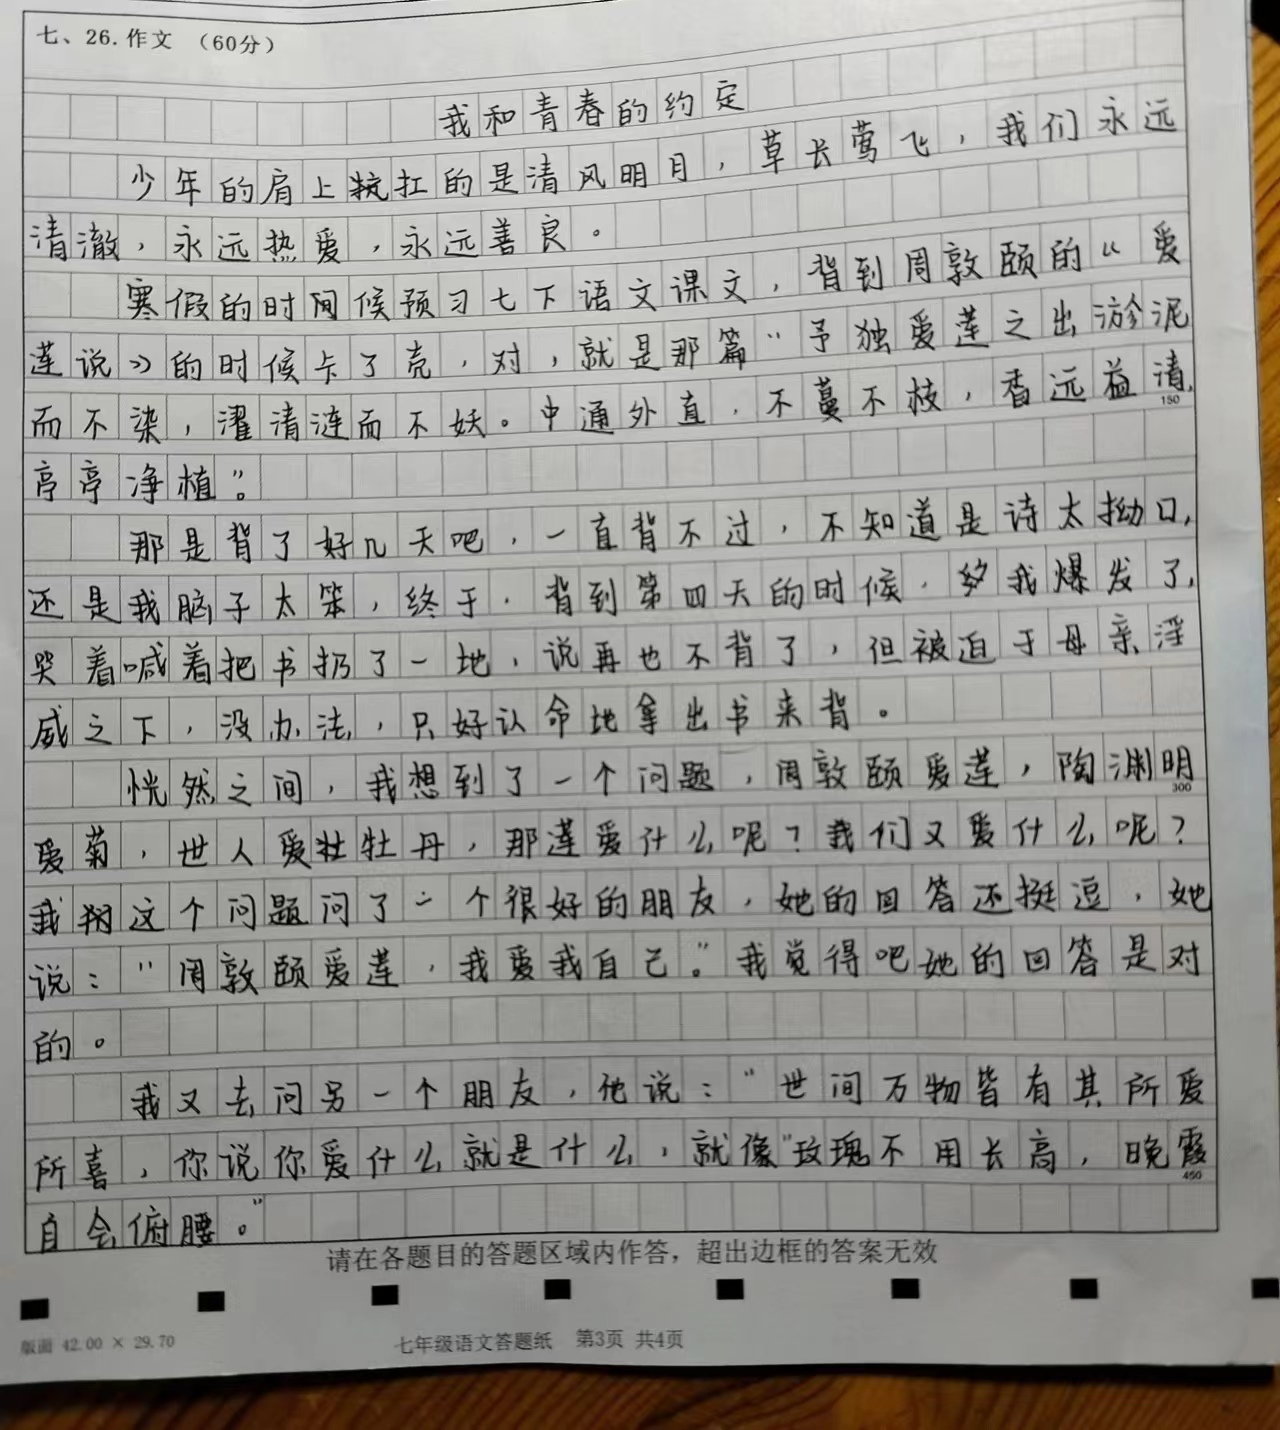 七、26.作文 (60分)
我和青春的约定
少年的肩上扛的是清风明月，草长莺飞，我们永远
清澈，永远热爱，永远善良。
寒假的时间候预习七下语文课文，背到周敦颐的《爱
莲说》的时候卡了壳，对，就是那篇“予独爱莲之出淤泥
而不染，濯清涟而不妖。中通外直，不蔓不枝，香远益清，
150
亭亭净植”。
那是背了好几天吧，一直背不过，不知道是诗太拗口，
还是我脑子太笨，终于，背到第四天的时候，我爆发了，
哭着喊着把书扔了一地，说再也不背了，但被迫于母亲淫
威之下，没办法，只好认命地拿出书来背。
恍然之间，我想到了一个问题，周敦颐爱莲，陶渊明
300
爱菊，世人爱牡丹，那莲爱什么呢？我们又爱什么呢？
我把这个问题问了一个很好的朋友，她的回答还挺逗，她
说：“周敦颐爱莲，我爱我自己。”我觉得吧她的回答是对
的。
我又去问另一个朋友，他说：“世间万物皆有其所爱
所喜，你说你爱什么就是什么，就像“玫瑰不用长高，晚霞
450
自会俯腰。”
请在各题目的答题区域内作答，超出边框的答案无效
版面 42.00 × 29.70
七年级语文答题纸 第3页 共4页